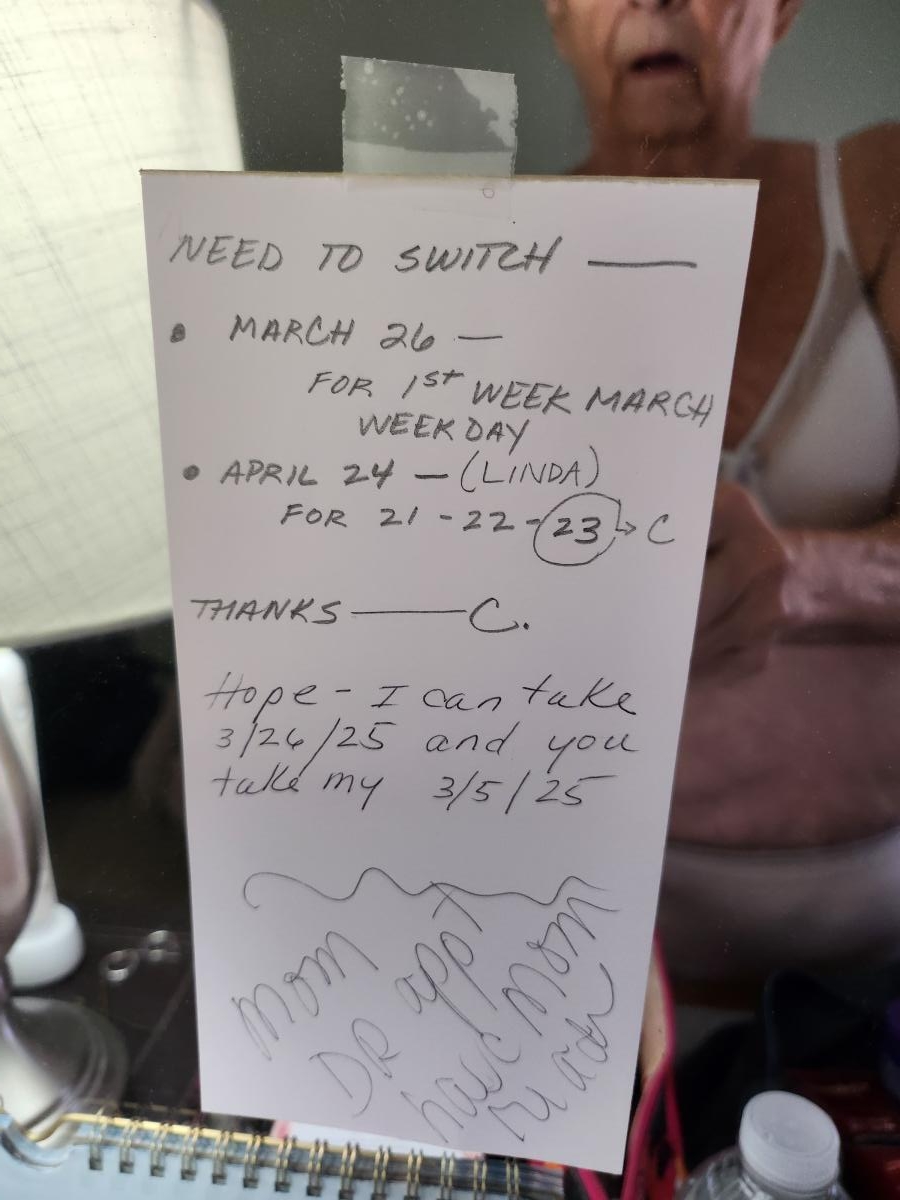 NEED TO SWITCH —
• MARCH 26 —
FOR 1st WEEK MARCH
WEEKDAY
• APRIL 24 — (LINDA)
FOR 21 - 22 - 23 → C
THANKS — C.
Hope - I can take
3/26/25 and you
take my 3/5/25
Mom
DR appt
have Mom